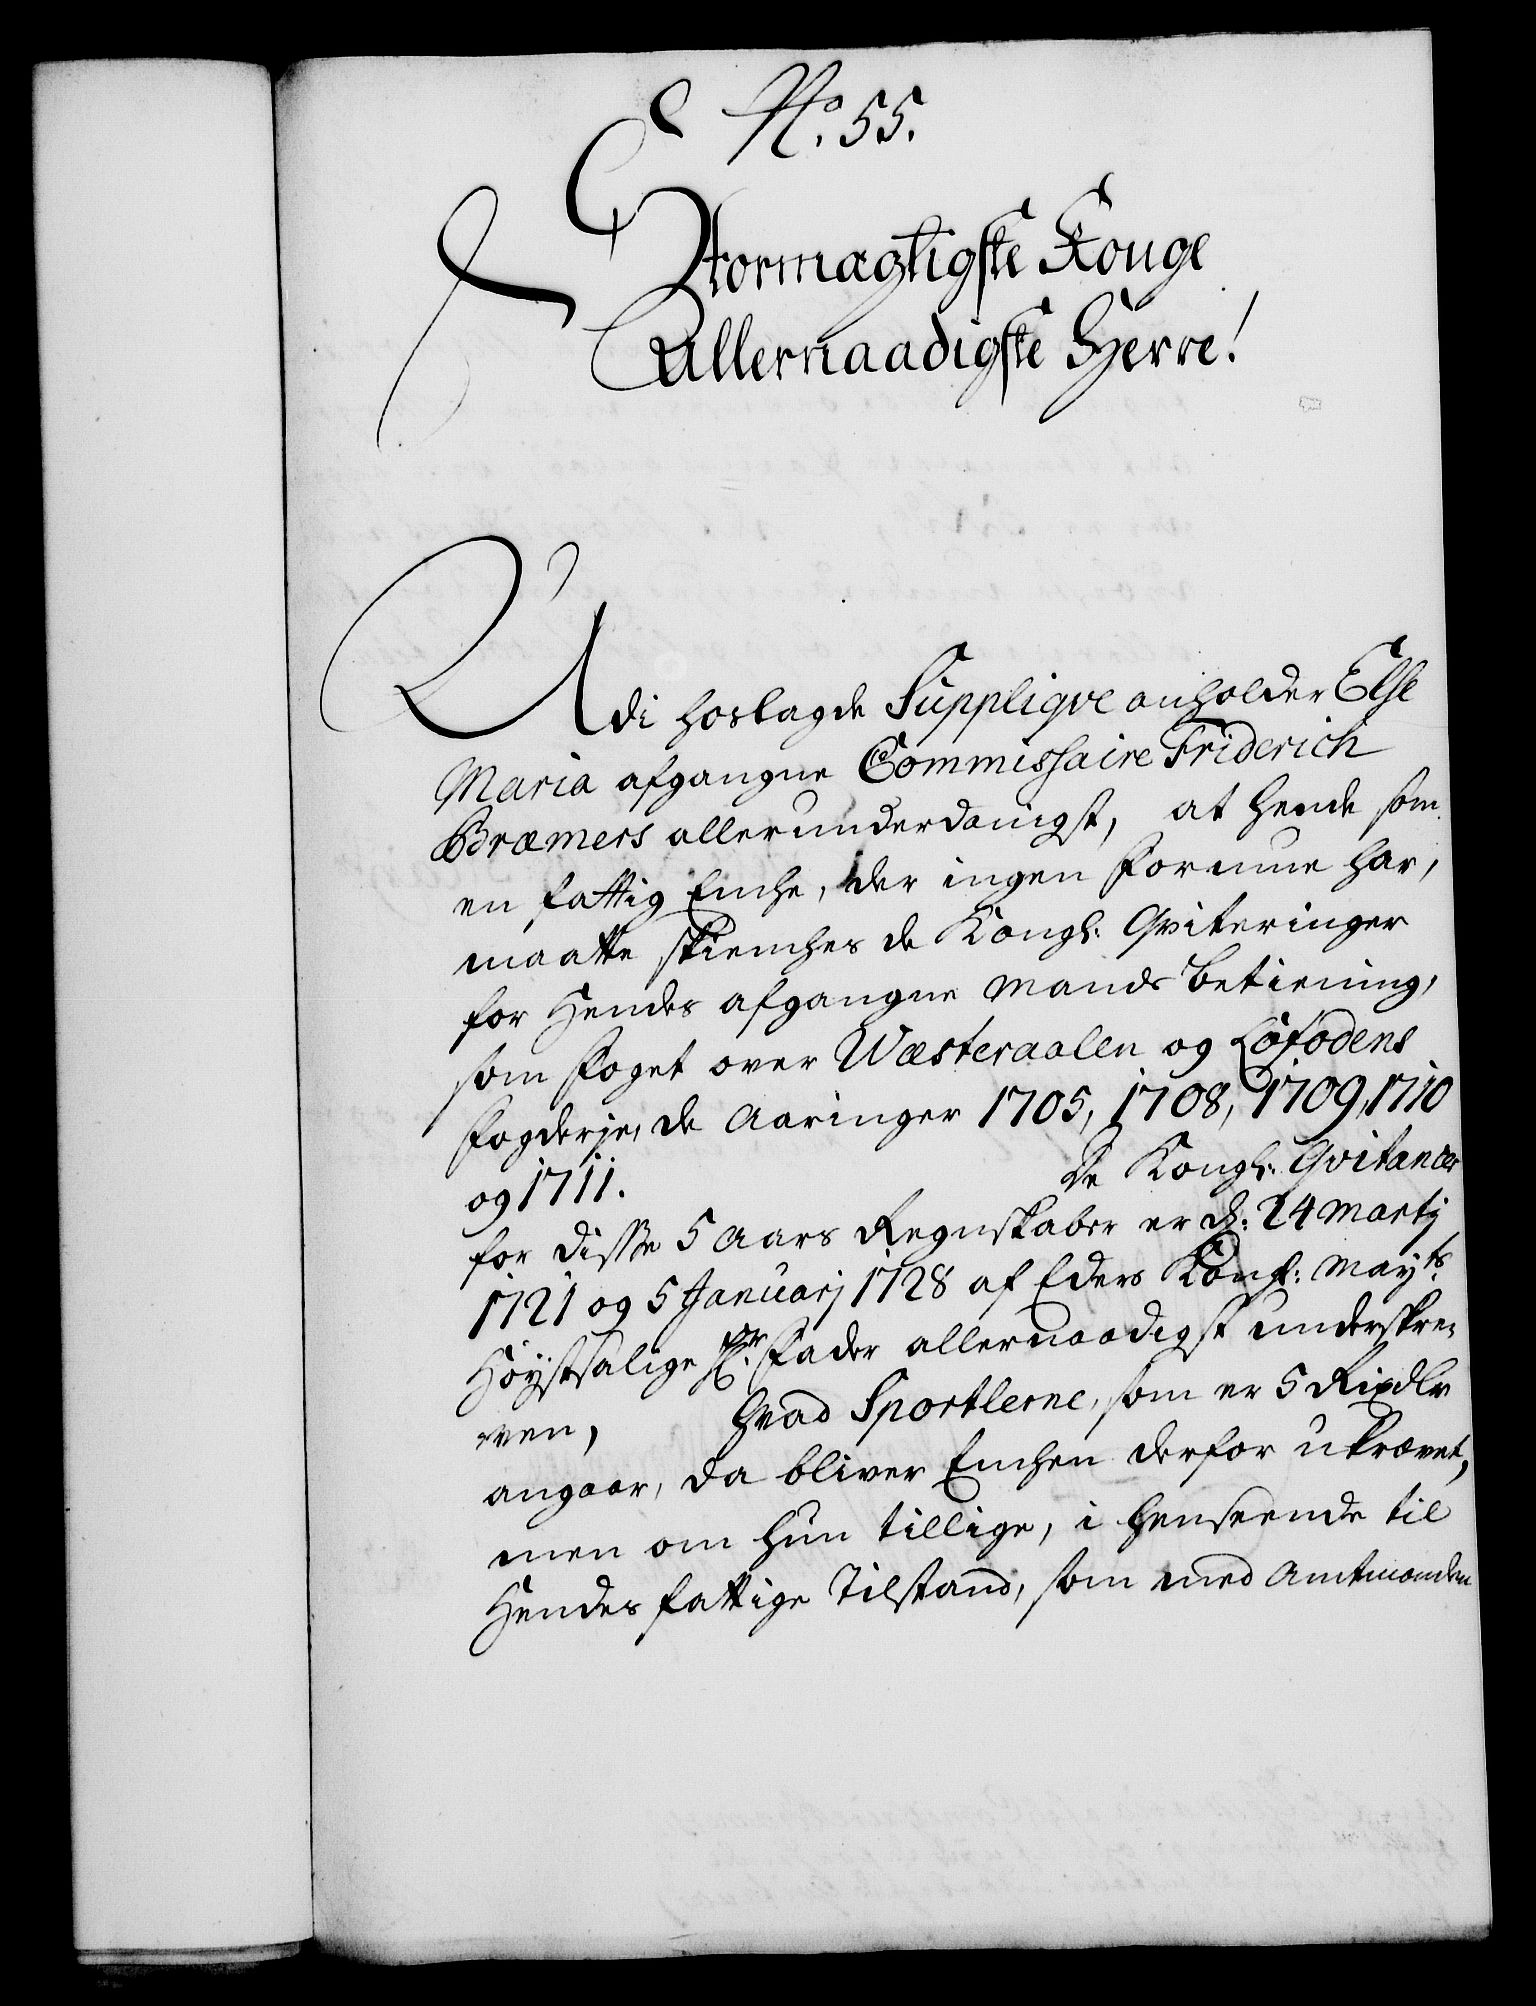 No. 55.
Stormægtigste Konge
Allernaadigste Herre!
Udi hoslagde Suppliqve anholder Else
Maria afgangne Commissaire Friderich
Bræmers allerunderdanigst, at hende som
en fattig Enche, der ingen Formue har,
maatte skienches de Kongl: Qviteringer
for Hendes afgangne Mands betiening,
som Foget over Wæsteraalen og Lofodens
Fogderje, de Aaringer 1705, 1708, 1709, 1710
og 1711. De Kongl: Qvitancer
for disse 5 Aars Regnskaber er d: 24 Martij
1721 og 5 Januarj 1728 af Eders Kongl: Mayts.
Høystsalige Hr. Fader allernaadigst underskre-
ven, Hvad Sportlerne, som er 5 Rixdlr
angaar, da bliver Enchen derfor ukrævet,
men om hun tillige, i henseende til
Hendes fattige Tilstand, som med Amtmanden